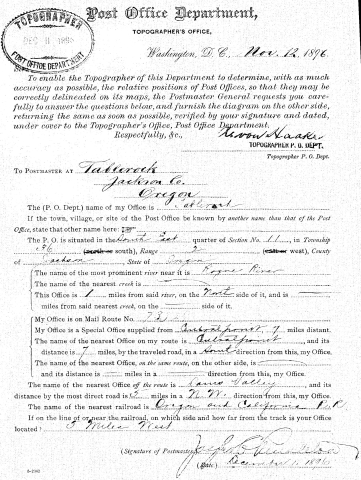 TOPOGRAPHER
DEC 11 1896
POST OFFICE DEPARTMENT
Post Office Department,
TOPOGRAPHER'S OFFICE,
Washington, D. C., Nov. 12, 1896
To enable the Topographer of this Department to determine, with as much
accuracy as possible, the relative positions of Post Offices, so that they may be
correctly delineated on its maps, the Postmaster General requests you care-
fully to answer the questions below, and furnish the diagram on the other side,
returning the same as soon as possible, verified by your signature and dated,
under cover to the Topographer's Office, Post Office Department.
Respectfully, &c.,
TOPOGRAPHER P. O. DEPT.
Topographer P. O. Dept.
To POSTMASTER AT Tablerock
Jackson Co.
Oregon
The (P. O. Dept.) name of my Office is Tablerock
If the town, village, or site of the Post Office be known by another name than that of the Post
Office, state that other name here:
The P. O. is situated in the South East quarter of Section No. 11, in Township
(south), Range 2 (west), County
of Jackson, State of Oregon
The name of the most prominent river near it is Rogue River
The name of the nearest creek is
This Office is 1 miles from said river, on the side of it, and is
miles from said nearest creek, on the side of it.
My Office is on Mail Route No.
My Office is a Special Office supplied from Centralpoint, 7 miles distant.
The name of the nearest Office on my route is Centralpoint, and its
distance is 7 miles, by the traveled road, in a direction from this, my Office.
The name of the nearest Office, on the same route, on the other side, is
and its distance is miles in a direction from this, my Office.
The name of the nearest Office off the route is Sams Valley, and its
distance by the most direct road is miles in a N. W. direction from this, my Office.
The name of the nearest railroad is Oregon and California R.R.
If on the line of or near the railroad, on which side and how far from the track is your Office
located? Miles West
(Signature of Postmaster)
(Date) December 1, 1896